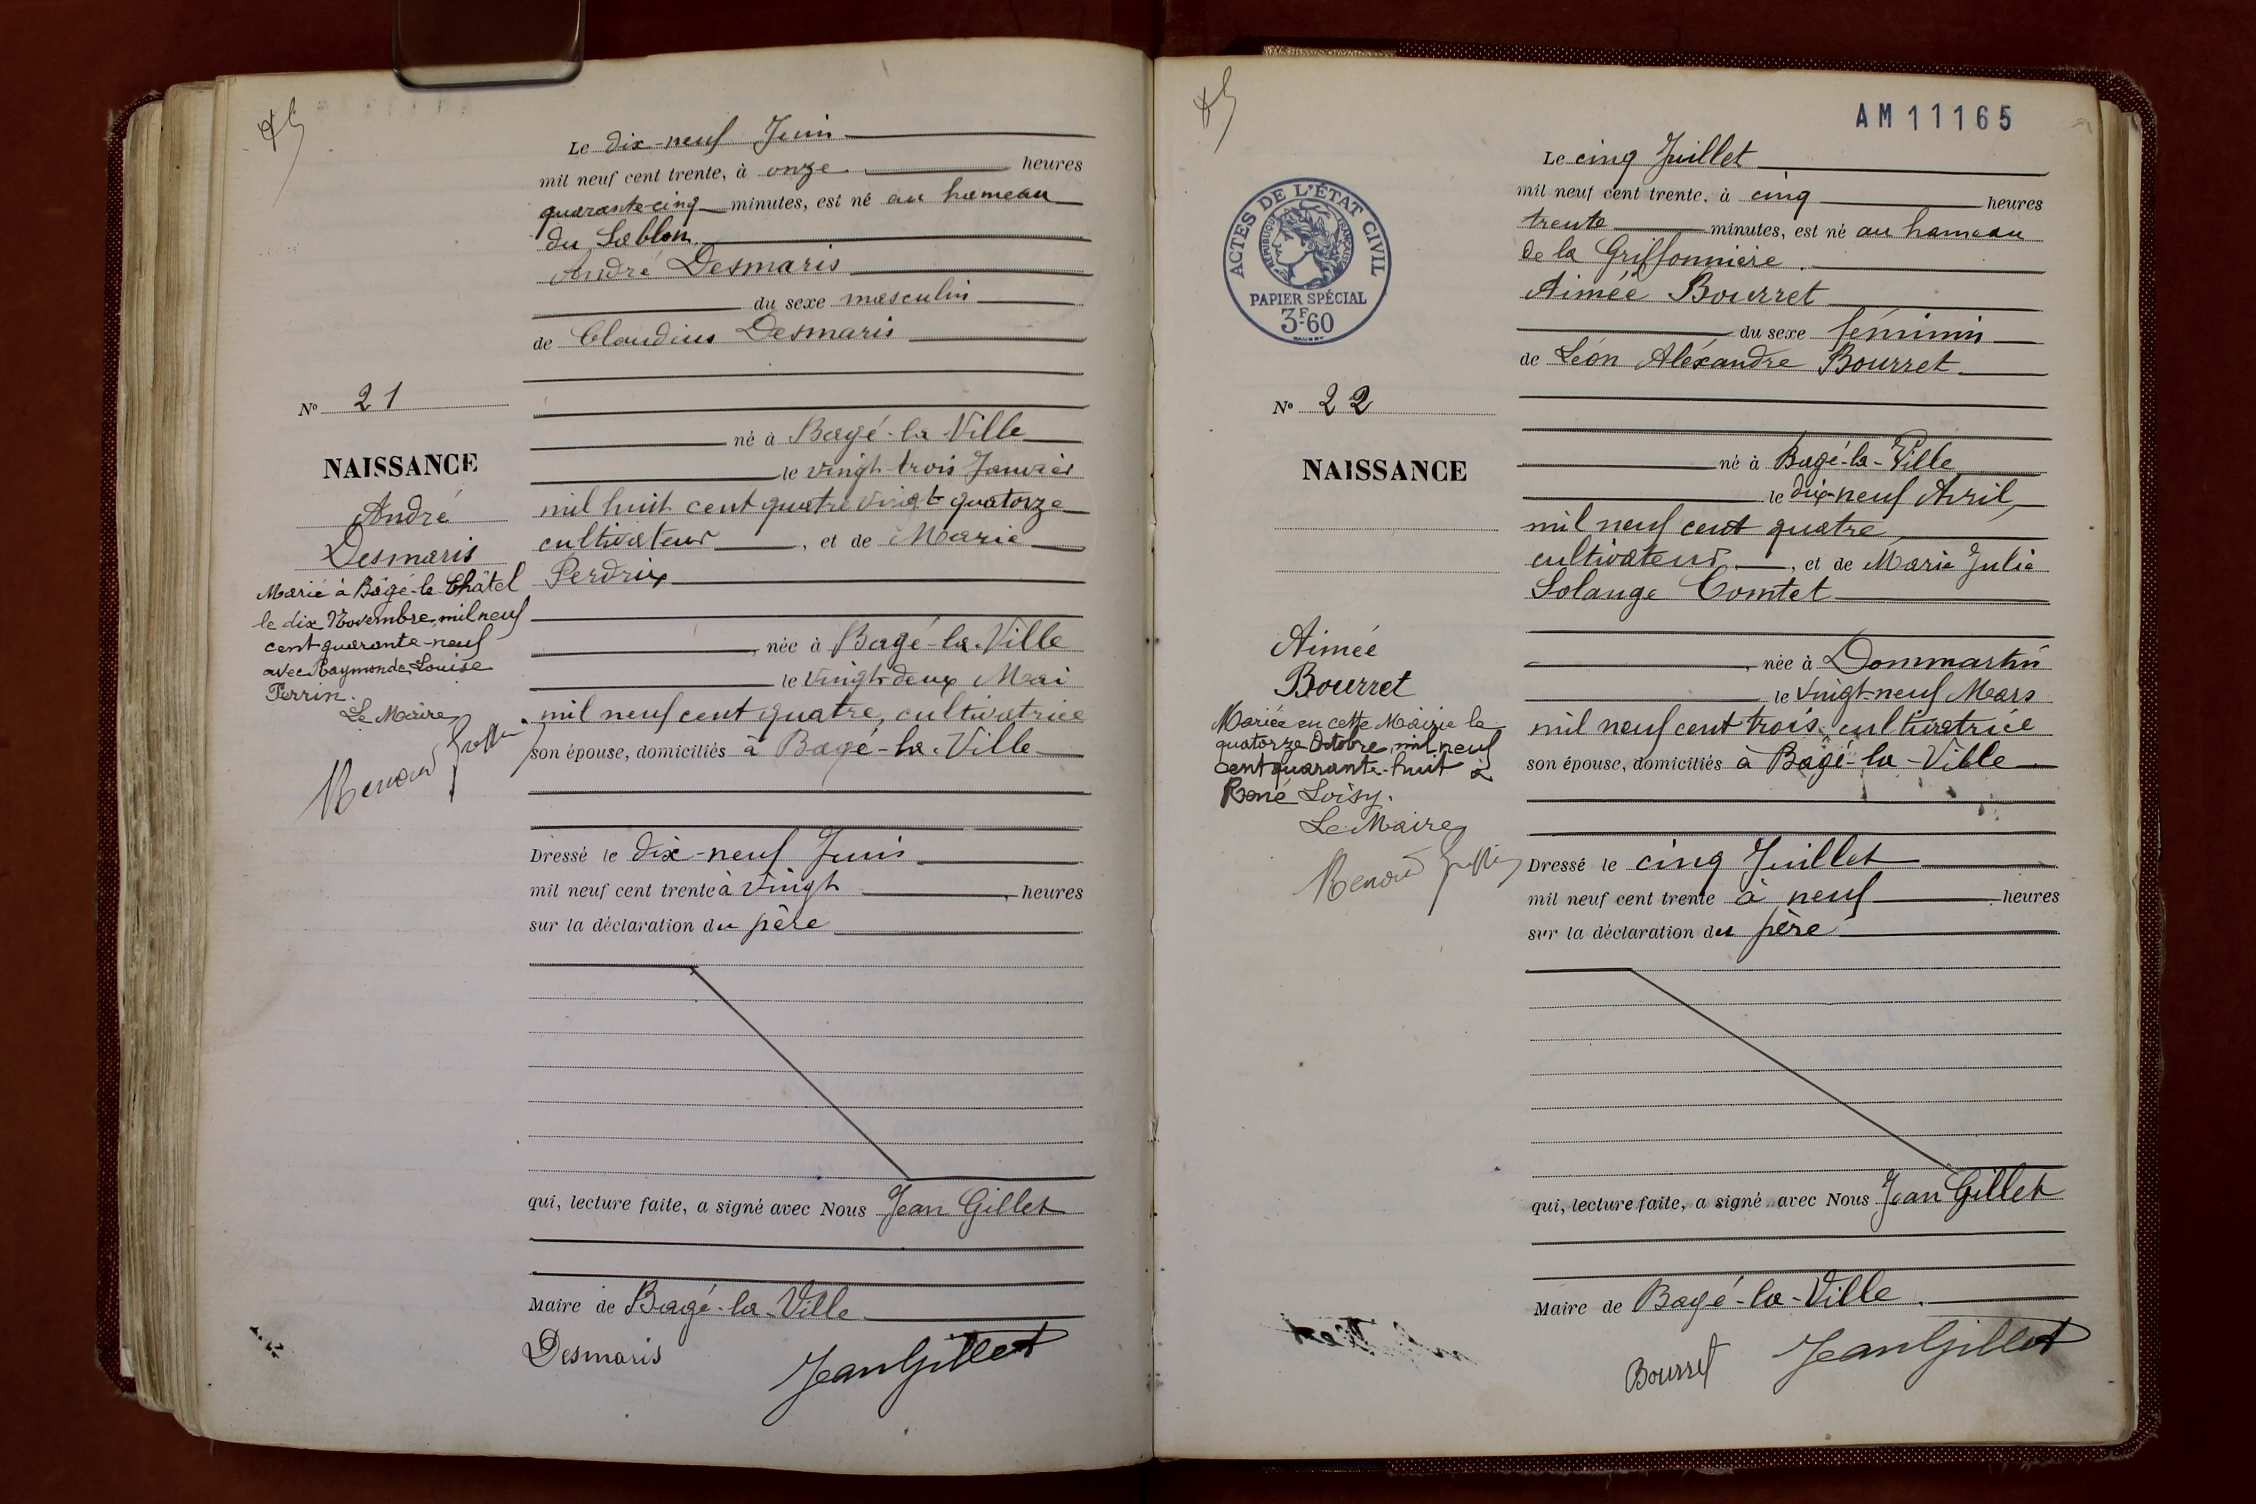 Le dix-neuf Juin
mil neuf cent trente, à onze heures
quarante-cinq minutes, est né au hameau
du Sablon.
André Desmaris
du sexe masculin
de Claudius Desmaris
né à Bagé-la-Ville
le vingt-trois Janvier
mil huit cent quatre vingt quatorze
cultivateur, et de Marie
Perdrix
née à Bagé-la-Ville
le vingt-deux Mai
mil neuf cent quatre, cultivatrice
son épouse, domiciliés à Bagé-la-Ville
Dressé le dix-neuf Juin
mil neuf cent trente à vingt heures
sur la déclaration du père
qui, lecture faite, a signé avec Nous Jean Gillet
Maire de Bagé-la-Ville
Desmaris Jean Gillet
No 21
NAISSANCE
André
Desmaris
Marié à Bâgé-le-Châtel
le dix Novembre mil neuf
cent quarante-neuf
avec Raymonde Louise
Perrin.
Le Maire,
AM11165
Le cinq Juillet
mil neuf cent trente, à cinq heures
trente minutes, est né au hameau
de la Griffonnière.
Aimée Bourret
du sexe féminin
de Léon Aléxandre Bourret
né à Bagé-la-Ville
le dix-neuf Avril
mil neuf cent quatre
cultivateur, et de Marie Julie
Solange Comtet
née à Dommartin
le vingt-neuf Mars
mil neuf cent trois, cultivatrice
son épouse, domiciliés à Bâgé-la-Ville
Dressé le cinq Juillet
mil neuf cent trente à neuf heures
sur la déclaration du père
qui, lecture faite, a signé avec Nous Jean Gillet
Maire de Bagé-la-Ville.
Bourret Jean Gillet
ACTES DE L'ÉTAT CIVIL
RÉPUBLIQUE FRANÇAISE
PAPIER SPÉCIAL
3F60
No 22
NAISSANCE
Aimée
Bourret
Mariée en cette Mairie le
quatorze Octobre mil neuf
cent quarante-huit à
René Loisy.
Le Maire,